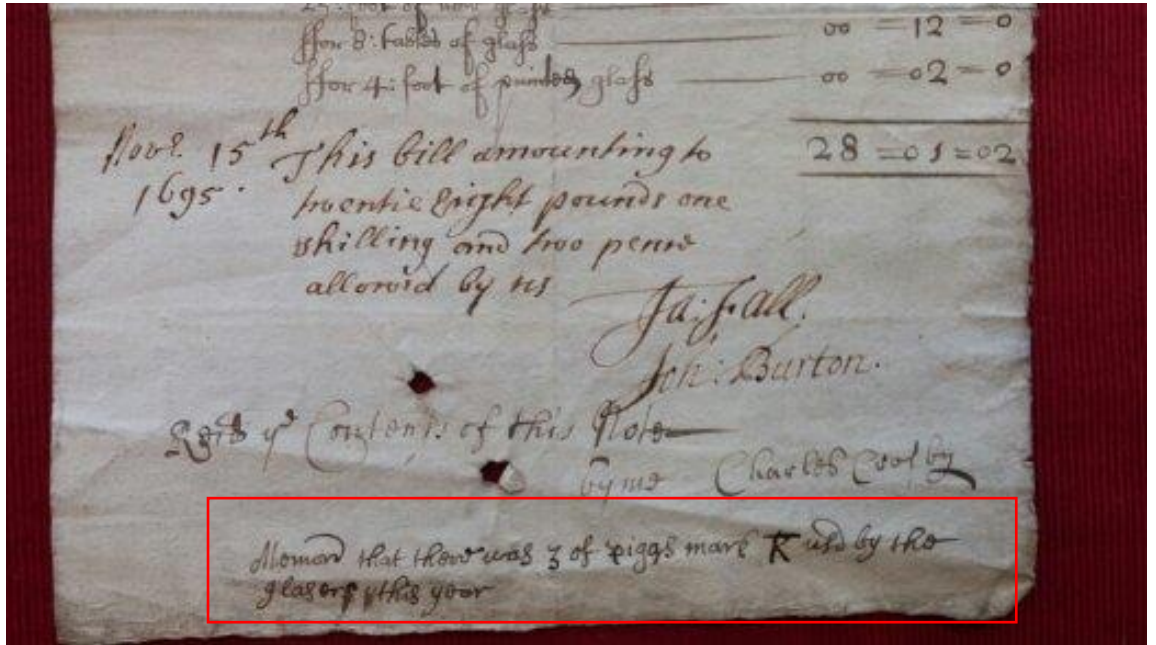 25: foot of new glass
ffor 8: tables of glass 00 = 12 = 0
ffor 4: foot of painted glass 00 = 02 = 0
28 = 01 = 02
Novr. 15th This bill amounting to
1695. twentie Eight pounds one
shilling and two pence
allow'd by us
Ja: Fall.
Joh: Burton.
ye Contents of this Note
by me Charles Crosby
Memord that there was 3 of piggs mark K usd by the
glasers this year